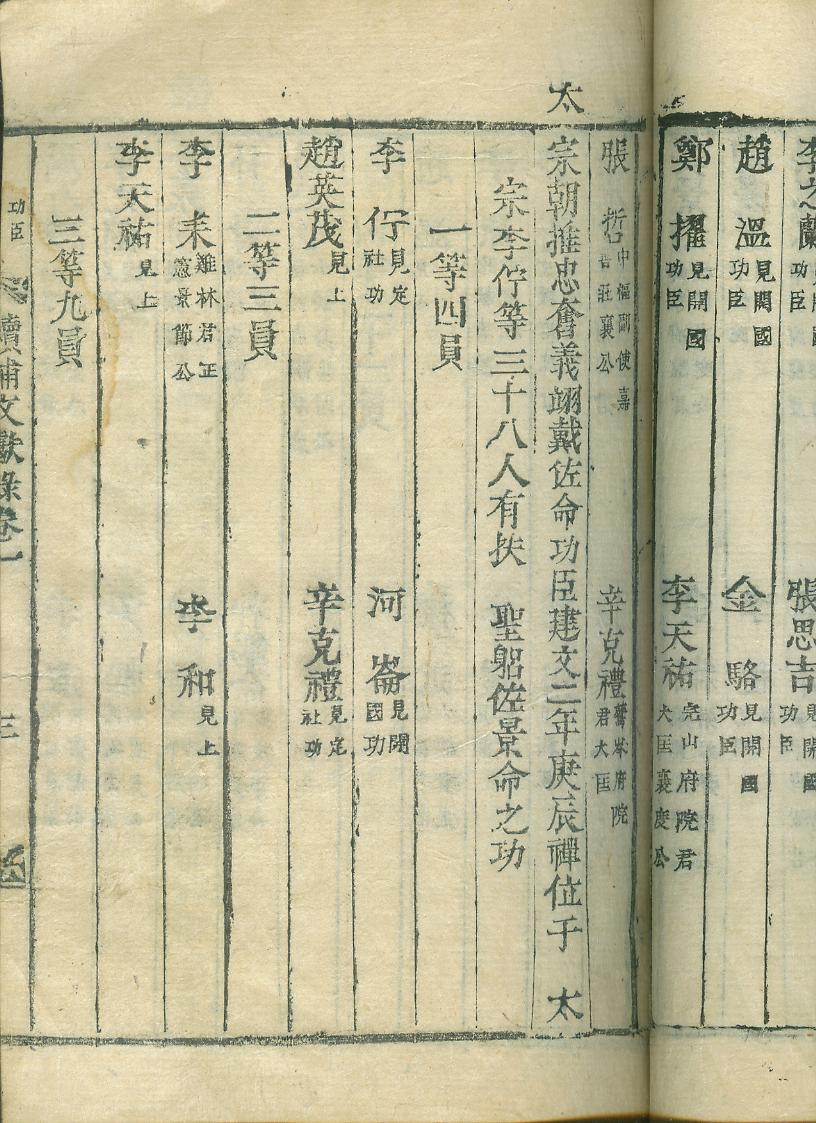 李之蘭 張思吉見開國功臣
趙溫見開國功臣 金輅見開國功臣
鄭擢見開國功臣 李天祐完山府院君大匡襄度公
張哲中樞副使嘉昔莊襄公 辛克禮鷲岑府院君大匡
太宗朝推忠奮義翊戴佐命功臣建文二年庚辰禪位于 太
宗李佇等三十八人有扶 聖躬佐景命之功
一等四員
李佇見定社功 河崙見開國功
趙英茂見上 辛克禮見定社功
二等三員
李来雞林君正憲景節公 李和見上
李天祐見上
三等九員
功臣 續補文獻錄卷一 三